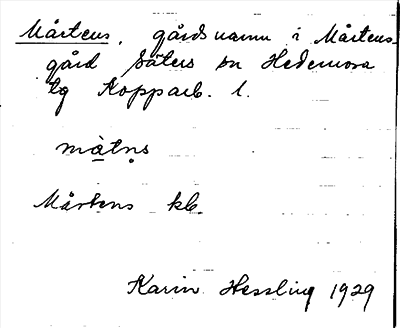 Mårtens, gårdsnamn i Mårtens-
gård Säters sn Hedemora
tg Kopparb. l.
màtṇs
Mårtens kb.
Karin Hessling 1929